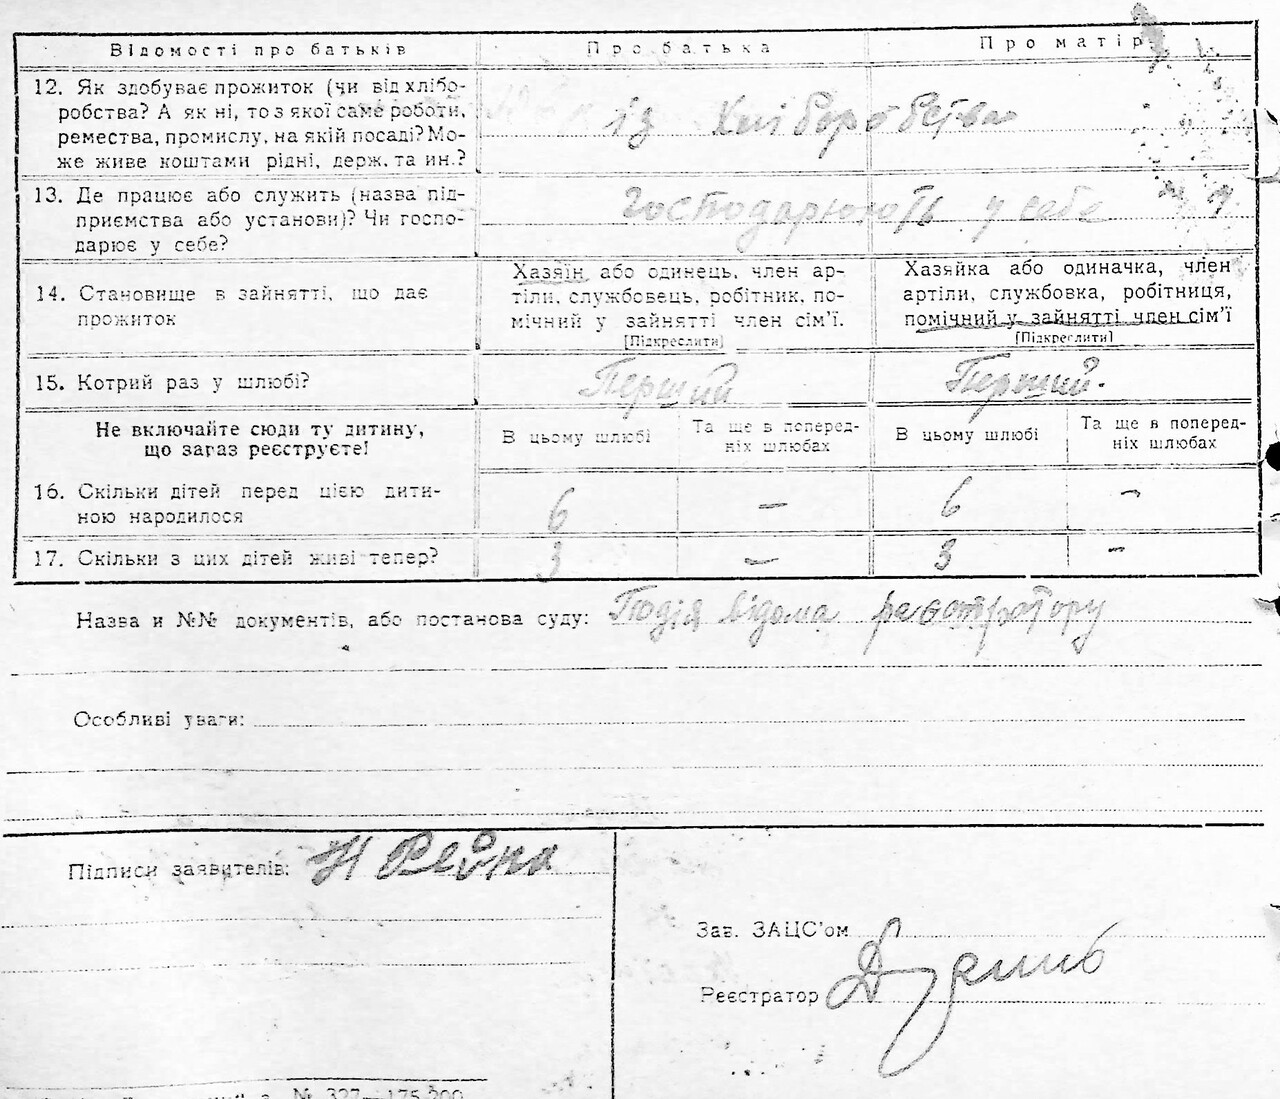 Відомості про батьків Про батька Про матір
12. Як здобуває прожиток (чи від хлібо-
робства? А як ні, то з якої саме роботи,
ремества, промислу, на якій посаді? Мо-
же живе коштами рідні, держ. та ин.?
із Хліборобства
13. Де працює або служить (назва під-
приємства або установи)? Чи госпо-
дарює у себе?
Господарюють у себе
14. Становище в зайнятті, що дає
прожиток
Хазяїн або одинець, член ар-
тіли, службовець, робітник, по-
мічний у зайнятті член сім'ї.
[Підкреслити]
Хазяйка або одиначка, член
артіли, службовка, робітниця,
помічний у зайнятті член сім'ї
[Підкреслити]
15. Котрий раз у шлюбі? Перший Перший.
Не включайте сюди ту дитину,
що зараз реєструєте!
В цьому шлюбі
Та ще в поперед-
ніх шлюбах
В цьому шлюбі
Та ще в поперед-
ніх шлюбах
16. Скільки дітей перед цією дити-
ною народилося
6 – 6 –
17. Скільки з цих дітей живі тепер? 3 – 3 –
Назва и №№ документів, або постанова суду: Подія відома реєстратору
Особливі уваги:
Підписи заявителів: Н Рейка
Зав. ЗАЦС'ом
Реєстратор
№ 327—175.500